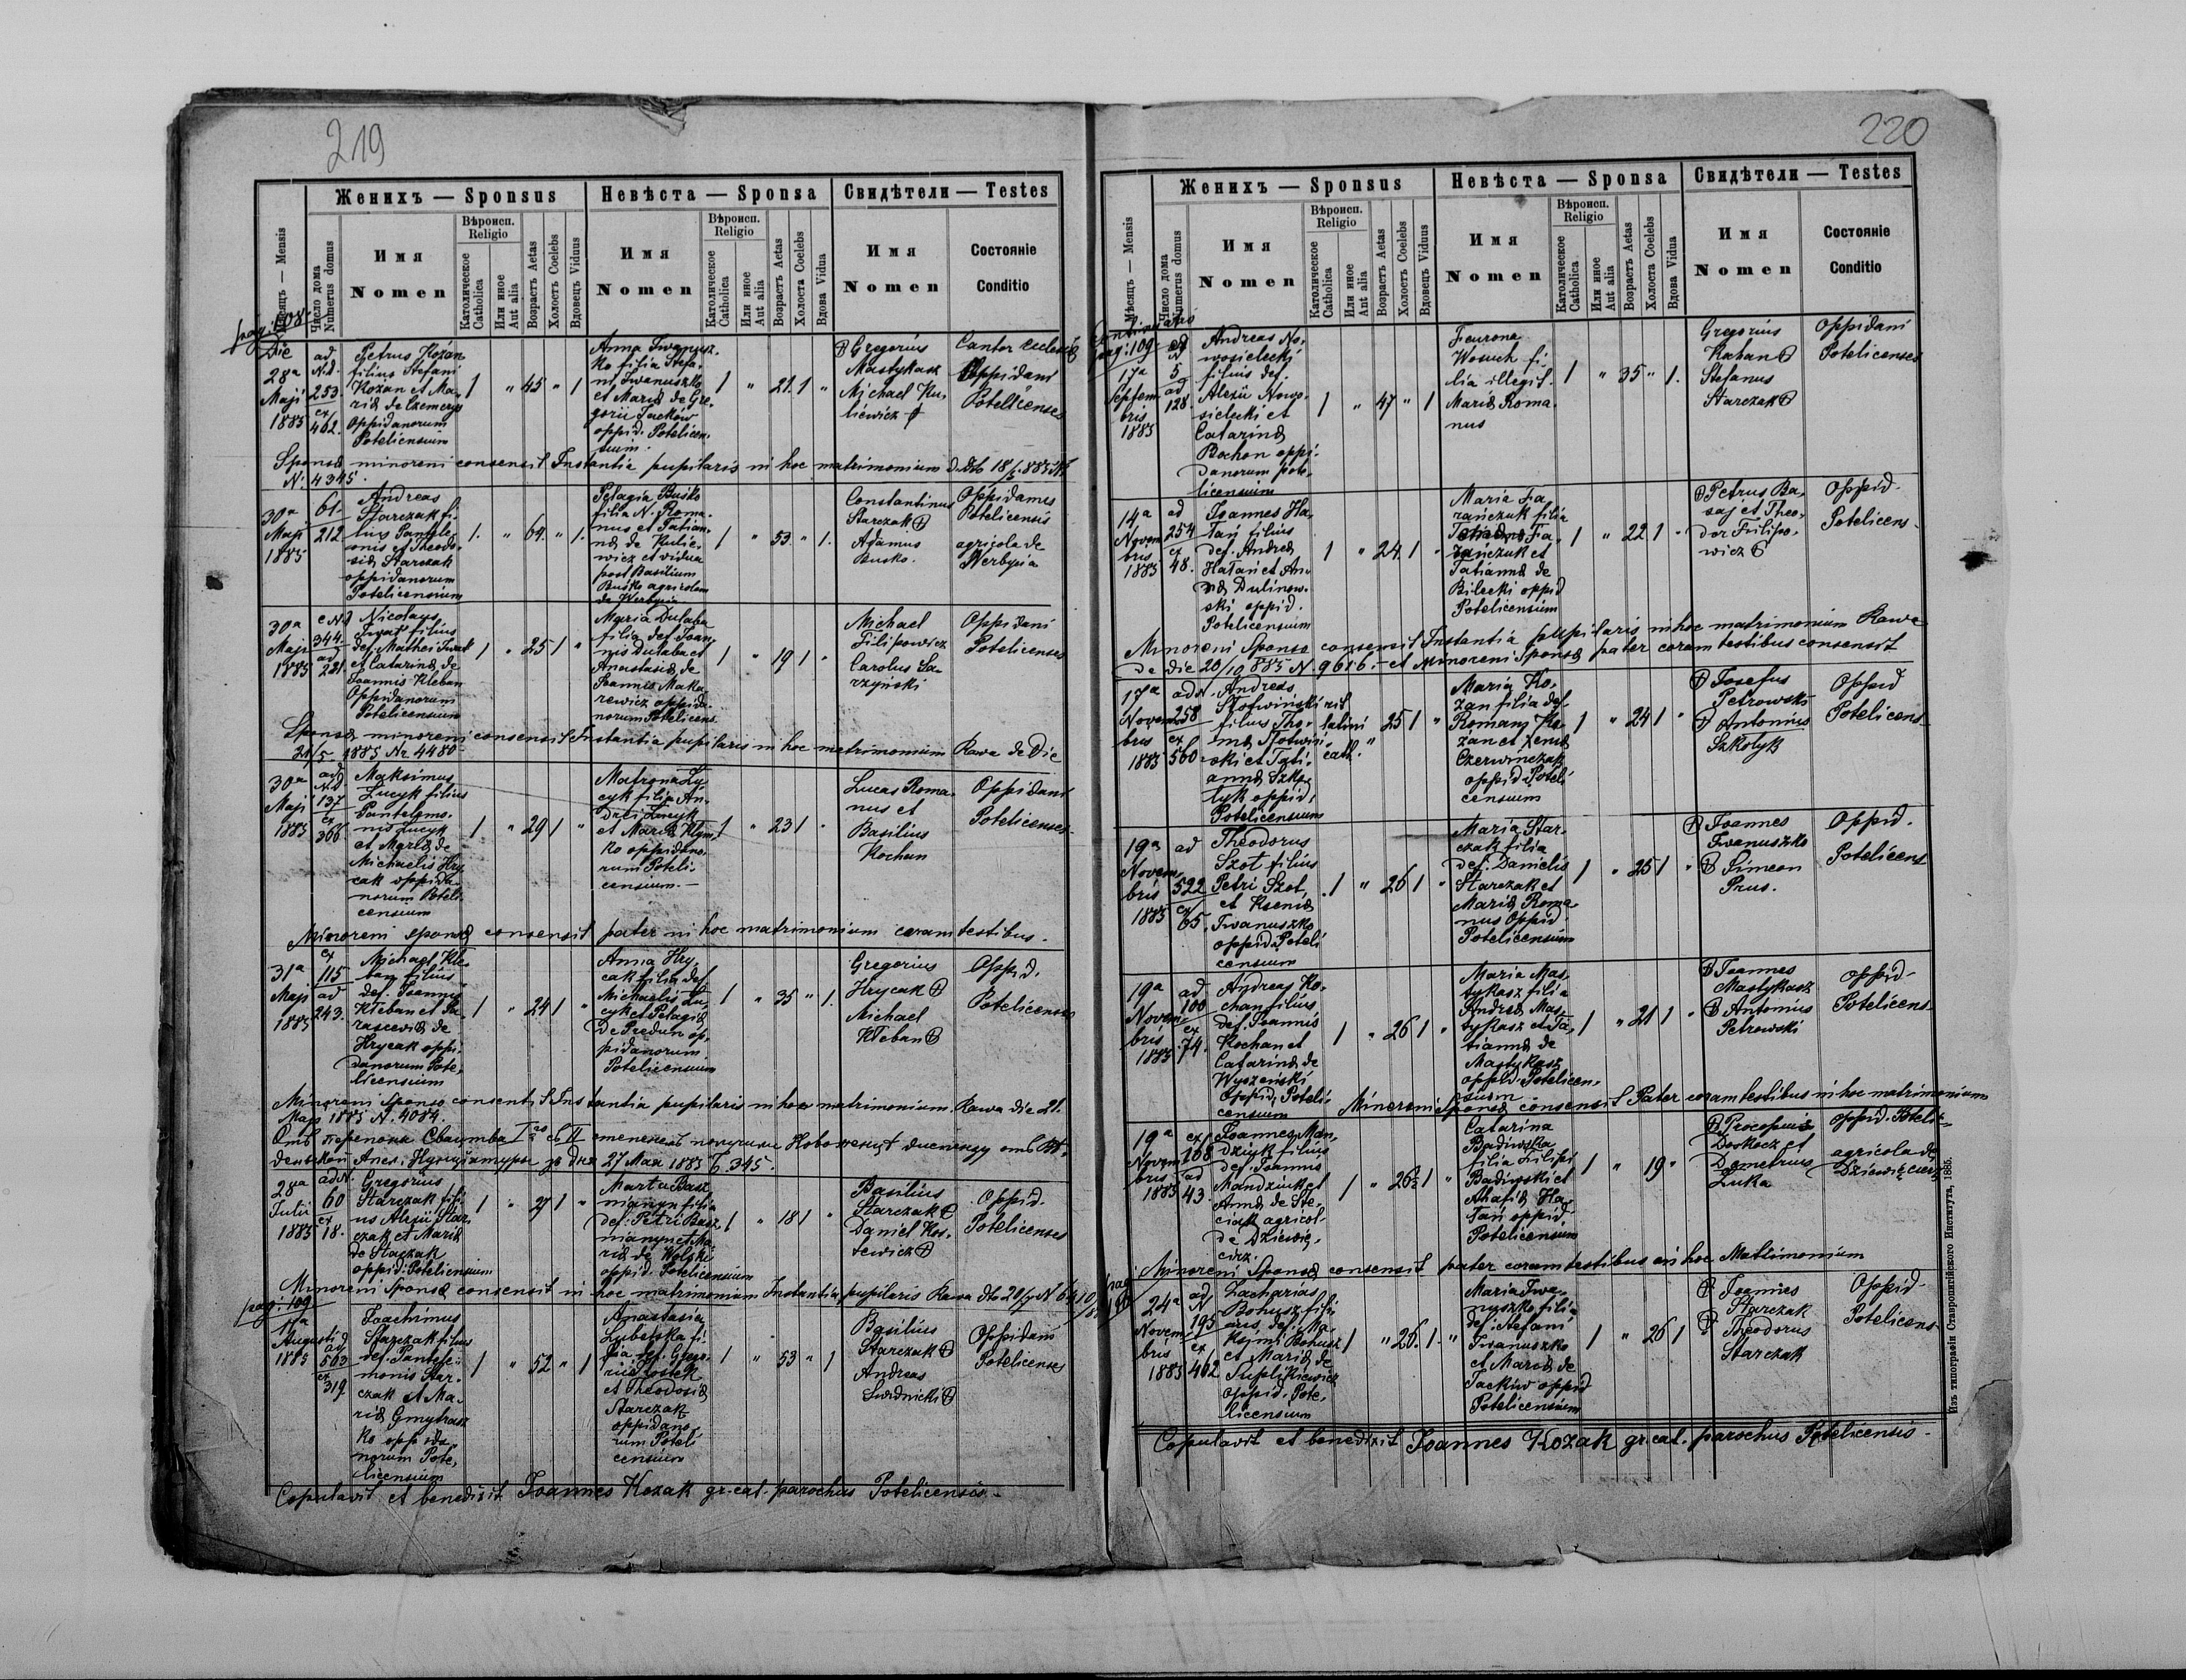 219
Женихъ — Sponsus
Невѣста — Sponsa
Свидѣтели — Testes
Мѣсяцъ — Mensis
Число дома
Numerus domus
Имя
Nomen
Вѣроисп.
Religio
Католическое
Catholica
Или иное
Aut alia
Возрастъ Aetas
Холостъ Coelebs
Вдовецъ Viduus
Имя
Nomen
Вѣроисп.
Religio
Католическое
Catholica
Или иное
Aut alia
Возрастъ Aetas
Холоста Coelebs
Вдова Vidua
Имя
Nomen
Состояніе
Conditio
pag: 108.
Die
28ª
Maji
1885
ad
N.d.
253.
ex
402.
Petrus Kozan
filius Stefani
Kozan et Ma-
riæ de Czemerys
oppidanorum
Potelicensium
1 " 45 " 1
Anna Iwanusz-
ko filia Stefa-
ni Iwanuszko
et Mariæ de Gre-
gorii Jacków
oppid. Potelicen-
sium.
1 " 21. 1 "
Gregorius
Mastykasz
Michael Ku-
liewicz
Cantor Eccles
Oppidani
Potelicenses
Sponsæ minoreni consensit Instantia pupilaris in hoc matrimonium
N. 4345.
30ª
Maji
1885
61.
212
Andreas
Starczak fi-
lius Pantele-
monis et Theodo-
siæ Starczak
oppidanorum
Potelicensium
1. " 64. " 1.
Pelagia Buśko
filia N. Roma-
nus et Tatian-
næ de Kulie-
wicz et vidua
post Basilium
Buśko agricolam
de Werbycia
1 " 53 " 1.
Constantinus
Starczak
Adamus
Busko.
Oppidanus
Potelicensis
agricola de
Werbycia
30ª
Maji
1885
e Nd
344.
ad
221
Nicolaus
Iwat filius
def. Mathei Iwat
et Catarinæ de
Joannis Kleban
Oppidanorum
Potelicensium
1 " 25 1 "
Maria Dulaba
filia def. Joan-
nis Dulaba et
Anastasiæ de
Joannis Maka-
rewicz oppida-
norum Potelicens.
1 " 19 1 "
Michael
Filipowicz
Carolus La-
rzyński
Oppidani
Potelicenses
Sponsæ minoreni consensit Instantia pupilaris in hoc matrimonium Rawa de Die
21/5 1885 Nr. 4480
30ª
Maji
1885
ad
N.d
137
ex
366
Maksimus
Lucyk filius
Pantelymo-
nis Lucyk
et Mariæ de
Michaelis Hry-
cak oppida-
norum Poteli-
censium
1 " 29 1 "
Matrona Ly-
cyk filia An-
drei Lucyk
et Mariæ Klym-
ko oppidano-
rum Poteli-
censium.
1 " 23 1 "
Lucas Roma-
nus et
Basilius
Kochan
Oppidani
Potelicenses
Minoreni sponsæ consensit pater in hoc matrimonium coram testibus.
31ª
Maji
1885
ex
115
ad
243.
Michael Kle-
ban filius
def. Joannis
Kleban et Pa-
rascewiæ de
Hrycak oppi-
danorum Pote-
licensium
1 " 24 1 "
Anna Hry-
cak filia def.
Michaelis Lu-
cyk et Pelagiæ
De Predun op-
pidanorum
Potelicensium
1 " 35 " 1.
Gregorius
Hrycak
Michael
Kleban
Oppid.
Potelicenses
Minoreni sponso consentit Instantia pupilaris in hoc matrimonium Rawa die 21.
Maji 1885 N. 4084.
27 Мая 1885 345.
28ª
Julii
1885
ad N.
60
ex
18.
Gregorius
Starczak fili-
us Alexii Star-
czak et Mariæ
de Starczak
oppid. Potelicensium
1 " 27 1 "
Marta Basz-
manyn filia
def: Petri Basz-
manyn et Ma-
riæ de Wolski
oppid. Potelicensium
1 " 18 1 "
Basilius
Starczak
Daniel Kos-
tewicz
Oppid.
Potelicenses
Minoreni Sponsæ consensit in hoc matrimonium Instantia pupilaris Rawa
pag: 109
Augusti
1885
ad
503
ex
319
Joachimus
Starczak filius
def. Pantele-
monis Star-
czak et Ma-
riæ Gmytrasz
ko oppida
norum Pote-
licensium
1 " 52 " 1
Anastasia
Lubetska fi-
lia def. Grego-
rii Kostek
et Theodosiæ
Starczak
oppidano
rum Poteli
censium
1 " 53 " 1
Basilius
Starczak
Andreas
Swidnicki
Oppidani
Potelicenses
Copulavit et benedixit Joannes Kozak gr. cat. parochus Potelicensis.
220
Женихъ — Sponsus
Невѣста — Sponsa
Свидѣтели — Testes
Мѣсяцъ — Mensis
Число дома
Numerus domus
Имя
Nomen
Вѣроисп.
Religio
Католическое
Catholica
Или иное
Aut alia
Возрастъ Aetas
Холостъ Coelebs
Вдовецъ Viduus
Имя
Nomen
Вѣроисп.
Religio
Католическое
Catholica
Или иное
Aut alia
Возрастъ Aetas
Холоста Coelebs
Вдова Vidua
Имя
Nomen
Состояніе
Conditio
Continuatio
pag: 109
17ª
Septem-
bris
1885
5
ad
128.
Andreas No-
wosielecki
filius def.
Alexii Nowo-
sielecki et
Catarinæ
Bochon oppi-
danorum pote-
licensium
1 " 47 " 1
Wosuch fi-
lia illegit.
Mariæ Roma-
nus
1 " 35 " 1.
Gregorius
Kahan
Stefanus
Starczak
Oppidani
Potelicenses
14ª
Novem
bris
1885
ad
254
ex
48.
Joannes Ha-
łań filius
def. Andreæ
Hałań et An-
næ Dulinow-
ski oppid.
Potelicensium
1 " 24. 1 "
Maria Fa-
rańczuk filia
Tatianna de
Bilecki oppid
Potelicensium
1 " 22 1 "
Petrus Ba-
saj et Theo-
dor Filipo-
wicz
Oppid.
Potelicens-
Minoreni Sponso consensit Instantia pupilaris in hoc matrimonium Rawa
de die 20/10 885 N. 9616 - et Minoreni Sponsæ pater coram testibus consensit
17ª
Novem
bris
1885
ad N.
258
ex
560
Andreas
Słotwiński
filius Tho-
mæ Słotwin-
ski et Tati-
annæ Szko-
łyk oppid.
Potelicensium
rit
latini
cath.
" 25 1 "
Maria Ko-
zan filia def.
Romani Ko-
zan et Xeniæ
Czerwińczak
oppid. Poteli
censium
1 " 24 1 "
Josefus
Petrowski
Antonius
Szkołyk
Oppid
Potelicens-
19ª
Novem
bris
1885
ad
522
ex
65.
Theodorus
Szot filius
Petri Szot
et Kseniæ
Iwanuszko
oppid. Poteli
censium
1 " 26 1 "
Maria Star-
czak filia
def. Danielis
Starczak et
Mariæ Roma-
nus Oppid.
Potelicensium
1 " 25 1 "
Joannes
Iwanuszko
Simeon
Prus.
Oppid.
Potelicens
19ª
Novem-
bris
1885
ad
100
ex
74.
Andreas Ko-
chan filius
def. Joannis
Kochan et
Catarinæ de
Wyszeński
Oppid. Poteli-
censium
1 " 26 1 "
Maria Mas-
tykasz filia
Andreæ Mas-
tykasz et Ta-
tiannæ de
Mastykasz
oppid. Potelicen-
sium
1 " 21 1 "
Joannes
Mastykasz
Antonius
Petrowski
oppid-
Potelicens-
Minoreni Sponsæ consensit Pater coram testibus in hoc matrimonium
19ª
Novem
bris
1885
ex
168
ad
43.
Joannes Man-
dziuk filius
def. Joannis
Mandziuk et
Annæ de Ste-
ciak agricol-
de Dziewię-
cierz.
1 " 26½ 1 "
Catarina
Badiwska
filia Filipi
Badiwski et
Ahafiæ Ha-
łań oppid.
Potelicensium
1 " 19 "
Procopius
Doskocz et
Demetrius
Luka
oppid. Poteli-
agricola de
Dziewięcierz
Minoreni Sponsæ consensit pater coram testibus in hoc Matrimonium
24ª
Novem-
bris
1885
ad
N
195
ex
402
Zacharias
Bohusz fili
us def. Ma-
ksimi Bohusz
et Mariæ de
Suplikiewicz
oppid. Pote-
licensium
1 " 26. 1. "
Maria Iwa-
nuszko filia
def: Stefani
Iwanuszko
et Mariæ de
Jacków oppid
Potelicensium
1 " 26 1
Joannes
Starczak
Theodorus
Starczak
Oppid-
Potelicens-
Copulavit et benedixit Joannes Kozak gr. cat. parochus Potelicensis-
Изъ типографіи Ставропигійского Института, 1885.